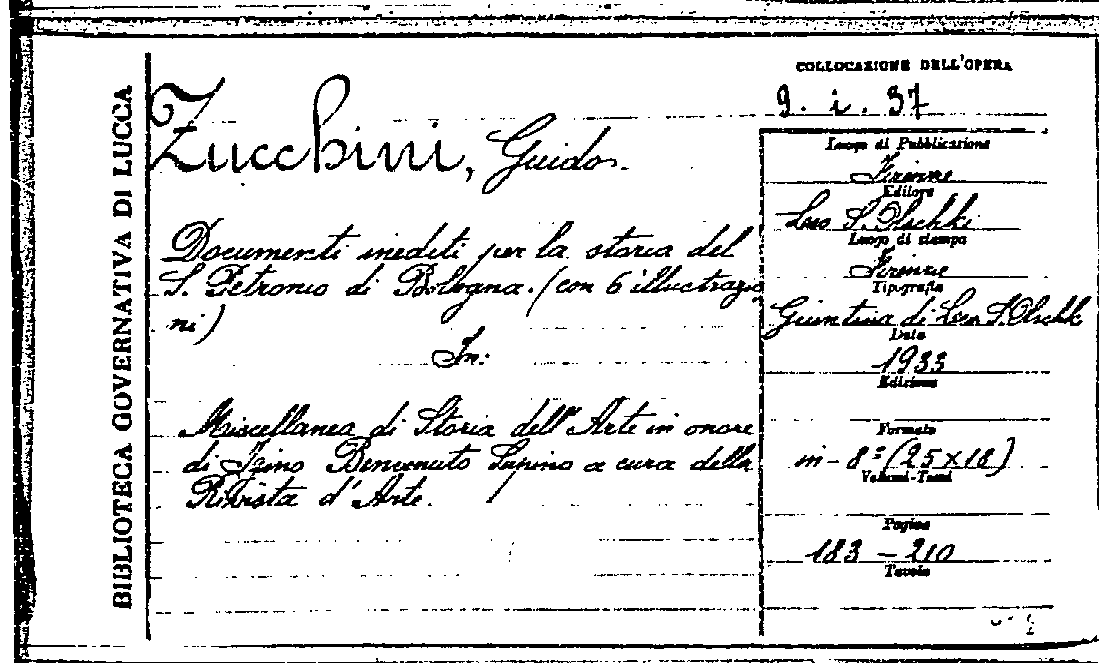 BIBLIOTECA GOVERNATIVA DI LUCCA
Zucchini, Guido.
Documenti inediti per la storia del
S. Petronio di Bologna. (con 6 illustrazio
ni)
In:
Miscellanea di Storia dell'Arte in onore
di Igino Benvenuto Supino a cura della
Rivista d'Arte.
COLLOCAZIONE DELL'OPERA
9. i. 37
Luogo di Pubblicazione
Firenze
Editore
Leo S. Olschki
Luogo di stampa
Firenze
Tipografia
Giuntina di Leo S. Olschki
Data
1933
Edizione
Formato
in-8° (25×18)
Volumi-Tomi
Pagine
183 - 210
Tavole